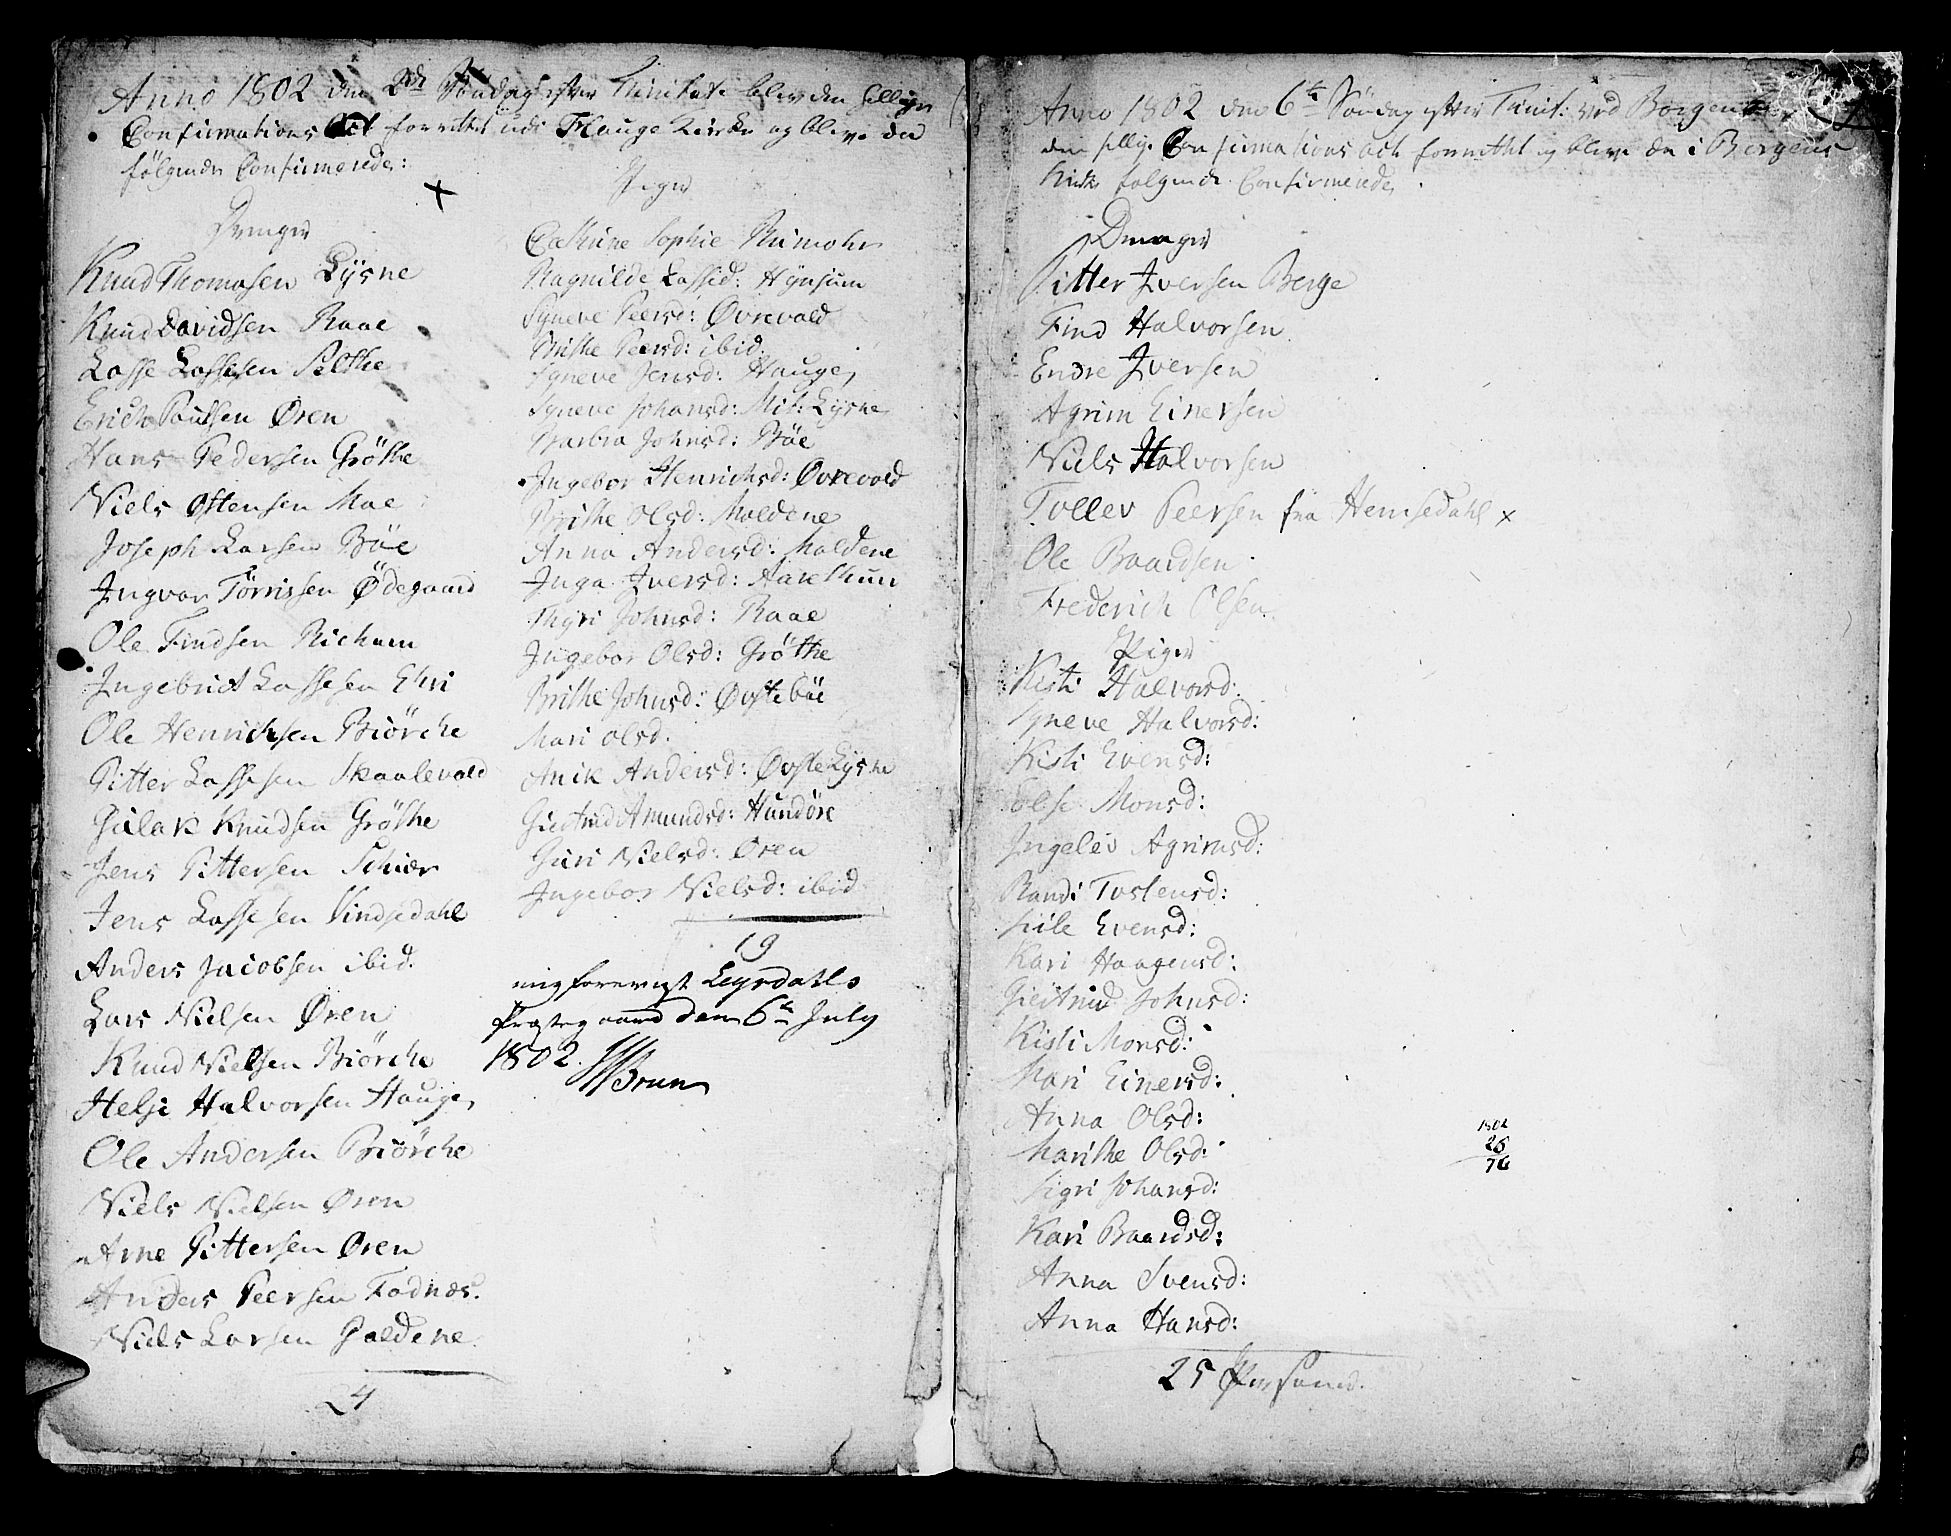 Anno 1802 den 2de Söndag efter Trinitatis blev den hellige
Confirmations Act forrettet udi Hauge Kirke og bleve da
følgende Confirmerede:
Drenge
Knud Thomasen Lysne
Knud Davidsen Raae
Lasse Lassesen Selthe
Erich Poulsen Øren
Hans Pedersen Gröthe
Niels Ostensen Moe
Joseph Larsen Böe
Ingvar Törrissen Ødegaard
Ole Findsen Richum
Ingebrict Lassesen Eri
Ole Henrichsen Biörche
Pitter Lassesen Skaalevold
Gulak Knudsen Gröthe
Jens Pittersen Schiær
Jens Lassesen Vindedahl
Anders Jacobsen ibid.
Lars Nielsen Øren
Knud Nielsen Biörche
Helje Halvorsen Hauge
Ole Andersen Biörche
Niels Nielsen Øren
Arne Pittersen Øren
Anders Peersen Fodnæs.
Niels Larsen Galdene
24
Piger
Cathrine Sophie Rumohr
Ragnilde Lassed: Hynjum
Syneve Peersd: Øvrevold
Brithe Peersd: ibid.
Syneve Jensd: Hauge
Syneve Johansd: Mit: Lysne
Barbra Johnsd: Böe
Ingebor Henrichsd: Øvrevold
Brithe Olsd: Moldene
Anna Andersd: Moldene
Inga Iversd: Aarethun
Thyri Johnsd: Raae
Ingebor Olsd: Gröthe
Brithe Johnsd: Øvsteböe
Mari Olsd.
Anik Andersd: Øvste Lysne
Giertrud Amundsd: Hundöre
Guri Nielsd: Øren
Ingebor Nielsd: ibid.
19
Leyrdahls
Præstegaard den 6te July
1802. Brun
Anno 1802 den 6te Söndag efter Trinit: ved Borgens
den hellige Confirmations Act forrettet og bleve da i Borgens
Kirke følgende Confirmerede
Drenge
Pitter Iversen Berge
Find Halvorsen
Endre Iversen
Agrim Einersen
Niels Halvorsen
Tollev Peersen fra Hemsedahl x
Ole Baardsen
Frederich Olsen
Piger
Kisti Halvorsd:
Syneve Halvorsd:
Kisti Evensd:
Else Monsd:
Ingelev Agrimsd:
Randi Tostensd:
Sille Evensd:
Kari Haagensd:
Giertrud Johnsd:
Kisti Monsd:
Mari Einersd:
Anna Olsd:
Marithe Olsd:
Sigri Johansd:
Kari Baardsd:
Anna Svensd:
Anna Hansd:
25 Personer.
1802
26
76